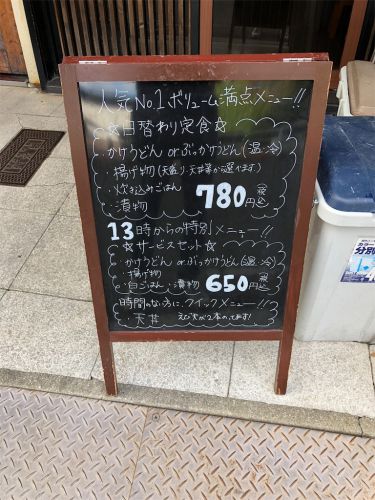 人気No.1ボリューム満点メニュー!!
☆日替わり定食☆
・かけうどん orぶっかけうどん(温・冷)
・揚げ物(天盛り、天丼等から選べます)
・炊き込みごはん
・漬物 780円 税込
13時からの特別メニュー!!
☆サービスセット☆
・かけうどん orぶっかけうどん(温・冷)
・揚げ物
・白ごはん、漬物 650円 税込
時間のない方に、クイックメニュー!!
・天丼 えび天が2本のってます!
分別